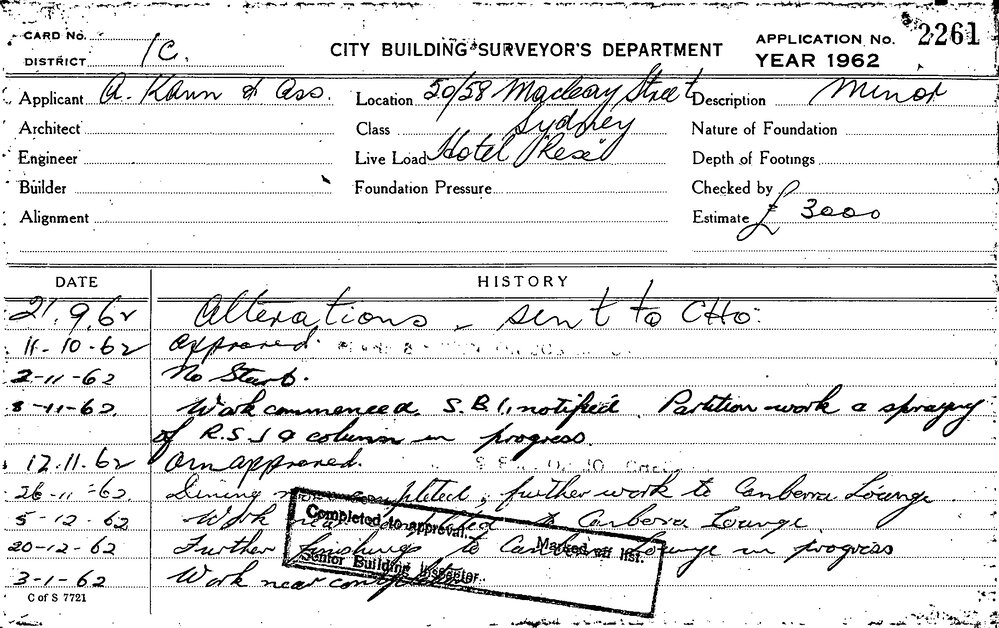 CARD No.
DISTRICT 1C.
CITY BUILDING SURVEYOR'S DEPARTMENT
APPLICATION No. 2261
YEAR 1962
Applicant A. Kann & Ass. Location 50/58 Macleay Street Description Minor
Architect Class Sydney Nature of Foundation
Engineer Live Load Hotel Rex Depth of Footings
Builder Foundation Pressure Checked by
Alignment Estimate £ 3000
DATE HISTORY
21.9.62 Alterations - sent to CHO.
11-10-62 Approved.
2-11-62 No Start.
8-11-62. Work commenced. S.B.I. notified. Partition work & spraying
of R.S.J & column in progress.
12.11.62 approved.
26-11-62. Dining completed, further work to Canberra Lounge.
5-12-62 Work near to Canberra Lounge
20-12-62 Further finishings to Lounge in progress
3-1-62 Work near
Completed to approval.
Marked off list.
Senior Building Inspector.
C of S 7721